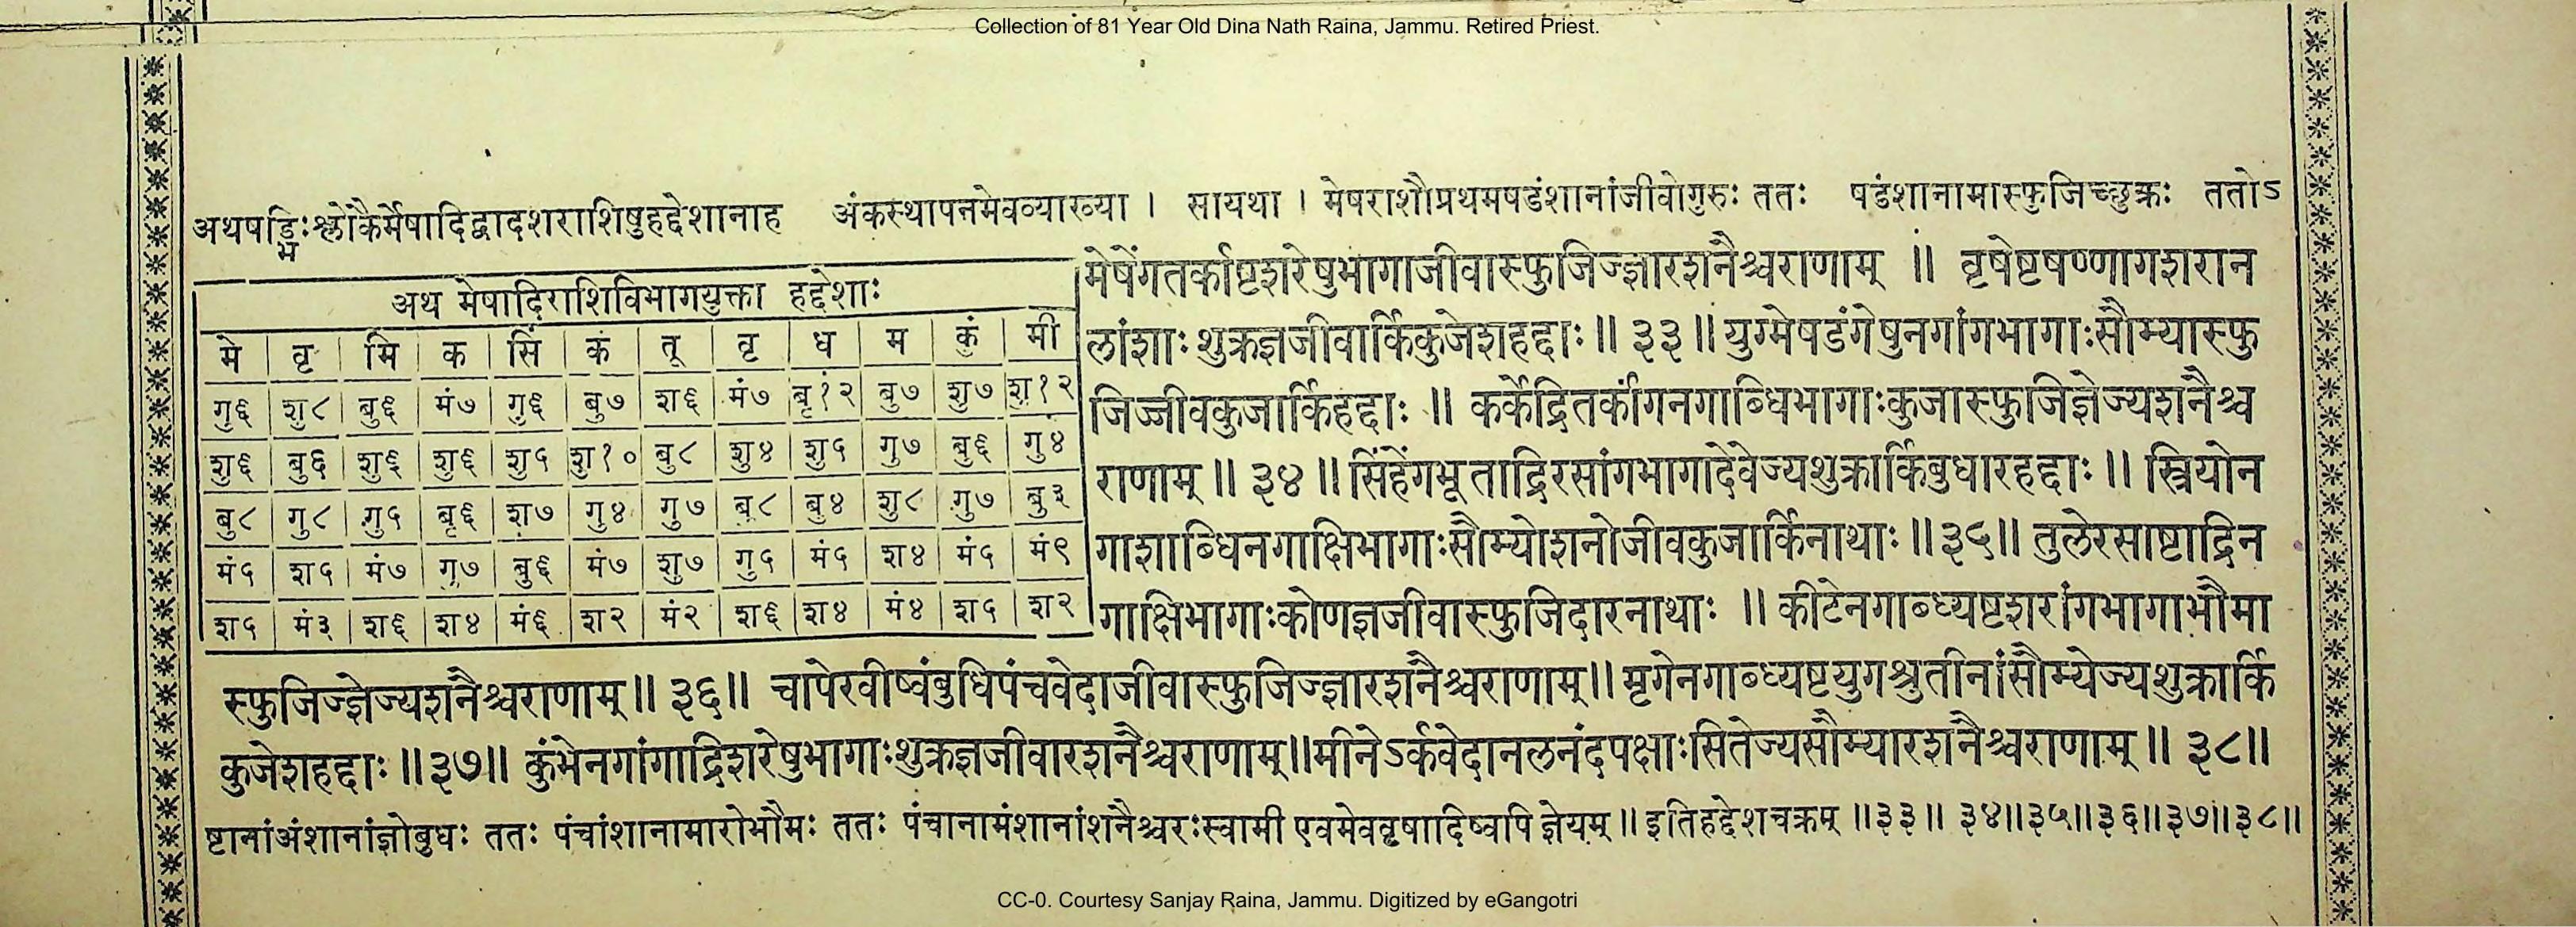 Collection of 81 Year Old Dina Nath Raina, Jammu. Retired Priest.
अथषड्भिःश्लोकैर्मेषादिद्वादशराशिषुहद्देशानाह अंकस्थापनमेवव्याख्या । सायथा । मेषराशौप्रथमषडंशानांजीवोगुरुः ततः षडंशानामास्फुजिच्छुक्रः ततोऽ
अथ मेषादिराशिविभागयुक्ता हद्देशाः
मे वृ मि क सिं कं तू वृ ध म कुं मी
गु६ शु८ बु६ मं७ गु६ बु७ श६ मं७ बृ१२ बु७ शु७ शु१२
शु६ बु६ शु६ शु६ शु५ शु१० बु८ शु४ शु५ गु७ बु६ गु४
बु८ गु८ गु५ बृ६ श७ गु४ गु७ बु८ बु४ शु८ गु७ बु३
मं५ श५ मं७ गु७ बु६ मं७ शु७ गु५ मं५ श४ मं५ मं९
श५ मं३ श६ श४ मं६ श२ मं२ श६ श४ मं४ श५ श२
मेषेंगतर्काष्टशरेषुभागाजीवास्फुजिज्ज्ञारशनैश्चराणाम् ॥ वृषेष्टषण्णागशरान
लांशाः शुक्रज्ञजीवार्किकुजेशहद्दाः ॥ ३३ ॥ युग्मेषडंगेषुनगांगभागाःसौम्यास्फु
जिज्जीवकुजार्किहद्दाः ॥ कर्केद्रितर्कांगनगाब्धिभागाःकुजास्फुजिज्ञेज्यशनैश्च
राणाम् ॥ ३४ ॥ सिंहेंगभूताद्रिरसांगभागादेवेज्यशुक्रार्किबुधारहद्दाः ॥ स्त्रियोन
गाशाब्धिनगाक्षिभागाःसौम्योशनोजीवकुजार्किनाथाः ॥ ३५ ॥ तुलेरसाष्टाद्रिन
गाक्षिभागाःकोणज्ञजीवास्फुजिदारनाथाः ॥ कीटेनगाब्ध्यष्टशरांगभागाभौमा
स्फुजिज्ज्ञेज्यशनैश्चराणाम् ॥ ३६ ॥ चापेरवीष्वंबुधिपंचवेदाजीवास्फुजिज्ज्ञारशनैश्चराणाम् ॥ मृगेनगाब्ध्यष्टयुगश्रुतीनांसौम्येज्यशुक्रार्कि
कुजेशहद्दाः ॥ ३७ ॥ कुंभेनगांगाद्रिशरेषुभागाःशुक्रज्ञजीवारशनैश्चराणाम् ॥ मीनेऽर्कवेदानलनंदपक्षाःसितेज्यसौम्यारशनैश्चराणाम् ॥ ३८ ॥
ष्टानांअंशानांज्ञोबुधः ततः पंचांशानामारोभौमः ततः पंचानामंशानांशनैश्चरःस्वामी एवमेववृषादिष्वपि ज्ञेयम् ॥ इतिहद्देशचक्रम् ॥३३॥ ३४॥३५॥३६॥३७॥३८॥
CC-0. Courtesy Sanjay Raina, Jammu. Digitized by eGangotri